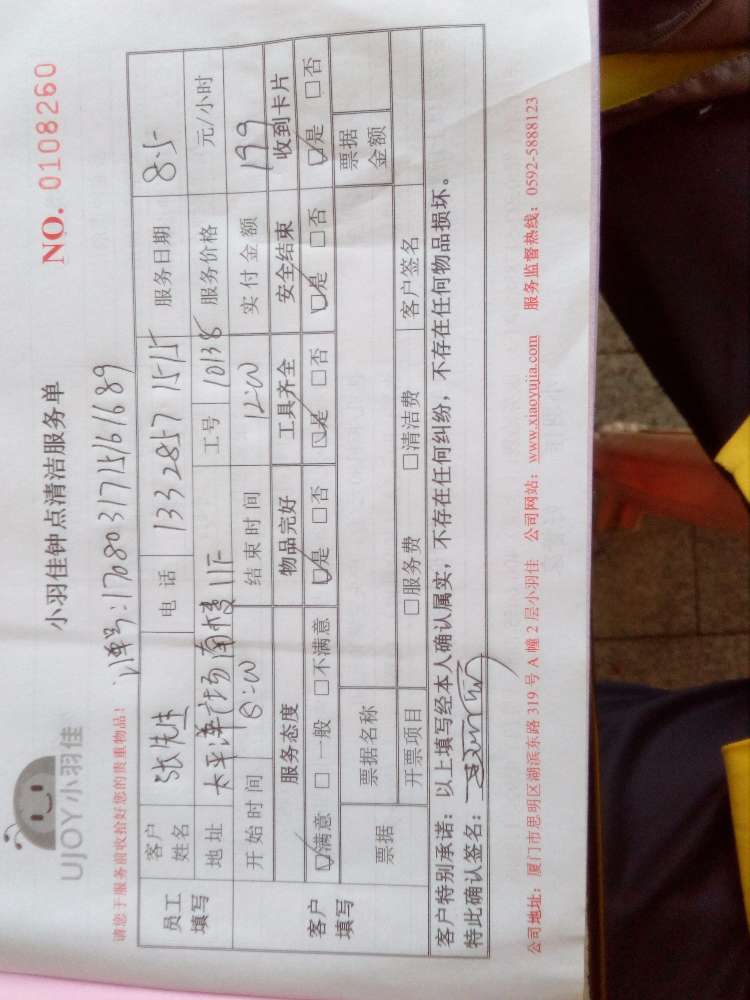 UJOY小羽佳
小羽佳钟点清洁服务单
NO. 0108260
请您于服务前收拾好您的贵重物品！
订单号:1708031715161689
员工填写
客户姓名 张先生 电话 133 2857 1515 服务日期 8.5
地址 太平洋广场南楼11F 工号 10138 服务价格 元/小时
客户填写
开始时间 8:00 结束时间 12:00 实付金额 199
服务态度 物品完好 工具齐全 安全结束 收到卡片
☑满意 □一般 □不满意 ☑是 □否 ☑是 □否 ☑是 □否 ☑是 □否
票据 票据名称 票据金额
开票项目 □服务费 □清洁费 客户签名
客户特别承诺：以上填写经本人确认属实，不存在任何纠纷，不存在任何物品损坏。
特此确认签名：
公司地址：厦门市思明区湖滨东路 319 号 A 幢 2 层小羽佳 公司网站：www.xiaoyujia.com 服务监督热线：0592-5888123